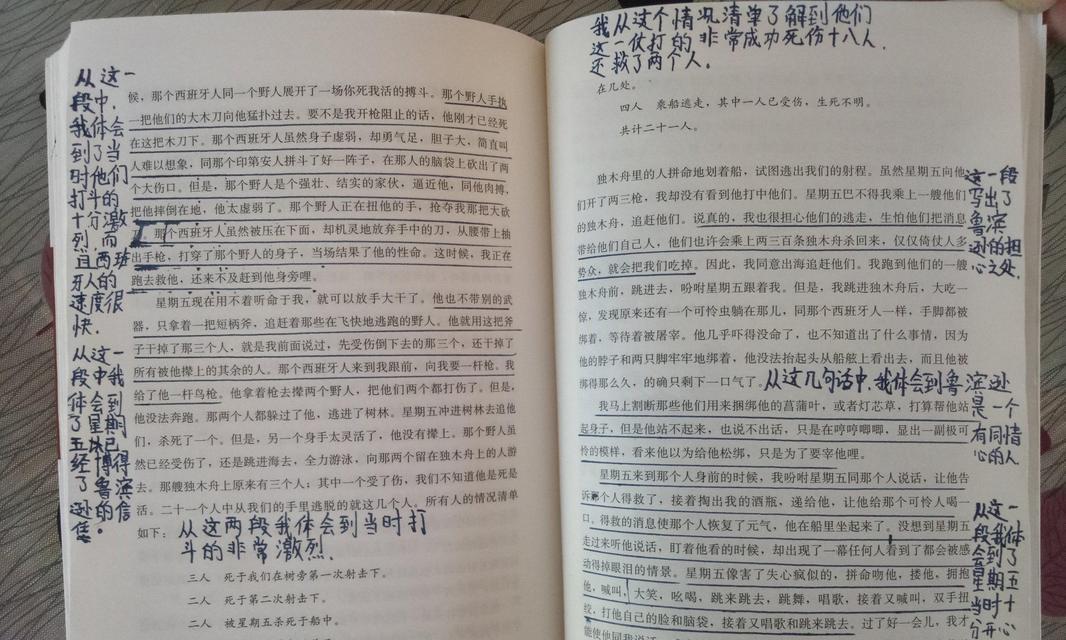 从这一
段中，
我体会
到了当
时他们
打斗的
十分激
烈，而
且西班
牙人的
速度很
快。
候，那个西班牙人同一个野人展开了一场你死我活的搏斗。那个野人手执
一把他们的大木刀向他猛扑过去。要不是我开枪阻止的话，他刚才已经死
在这把木刀下。那个西班牙人虽然身子虚弱，却勇气足，胆子大，简直叫
人难以想象，同那个印第安人拼斗了好一阵子，在那人的脑袋上砍出了两
个大伤口。但是，那个野人是个强壮、结实的家伙，逼近他，同他肉搏，
把他摔倒在地，他太虚弱了。那个野人正在扭他的手，抢夺我那把大砍
刀。那个西班牙人虽然被压在下面，却机灵地放弃手中的刀，从腰带上抽
出手枪，打穿了那个野人的身子，当场结果了他的性命。这时候，我正在
跑去救他，还来不及赶到他身旁哩。
星期五现在用不着听命于我，就可以放手大干了。他也不带别的武
器，只拿着一把短柄斧，追赶着那些在飞快地逃跑的野人。他就用这把斧
子干掉了那三个人，就是我前面说过，先受伤倒下去的那三个，还干掉了
所有被他撵上的其余的人。那个西班牙人来到我跟前，向我要一杆枪。我
给了他一杆鸟枪。他拿着枪去撵两个野人，把他们两个都打伤了。但是，
他没法奔跑。那两个人都躲过了他，逃进了树林。星期五冲进树林去追他
们，杀死了一个。但是，另一个身手太灵活了，他没有撵上。那个野人虽
然已经受伤了，还是跳进海去，全力游泳，向那两个留在独木舟上的人游
去。那艘独木舟上原来有三个人，其中一个受了伤，我们不知道他是死是
活。二十一个人中从我们的手里逃脱的就这几个人。所有人的情况清单
如下：
从这一
段中我
体会到
了星期
五林已
经博得
了鲁滨
逊的信
任。
从这两段我体会到当时打
斗的非常激烈.
三人　死于我们在树旁第一次射击下。
二人　死于第二次射击下。
二人　被星期五杀死于船中。
我从这个情况清单了解到他们
这一仗打的非常成功死伤十八人.
还救了两个人.
在几处。
四人　乘船逃走，其中一人已受伤，生死不明。
共计二十一人。
独木舟里的人拼命地划着船，试图逃出我们的射程。虽然星期五向他
们开了两三枪，我却没有看到他打中他们。星期五巴不得我乘上一艘他们
的独木舟，追赶他们。说真的，我也很担心他们的逃走，生怕他们把消息
带给他们自己人，他们也许会乘上两三百条独木舟杀回来，仅仅倚仗人多
势众，就会把我们吃掉。因此，我同意出海追赶他们。我跑到他们的一艘
独木舟前，跳进去，吩咐星期五跟着我。但是，我跳进独木舟后，大吃一
惊，发现原来还有一个可怜虫躺在那儿，同那个西班牙人一样，手脚都被
绑着，等待着被屠宰。他几乎吓得没命了，也不知道出了什么事情，因为
他的脖子和两只脚牢牢地绑着，他没法抬起头从船舷上看出去，而且他被
绑得那么久，的确只剩下一口气了。
这一段
写出了
鲁滨
逊的担
心之处.
从这几句话中，我体会到鲁滨逊
是一个
有同情
心的人
我马上割断那些他们用来捆绑他的菖蒲叶，或者灯芯草，打算帮他站
起身子，但是他站不起来，也说不出话，只是在哼哼唧唧，显出一副极可
怜的模样，看来他以为给他松绑，只是为了要宰他哩。
星期五来到那个人身前的时候，我吩咐星期五同那个人说话，让他告
诉那个人得救了，接着掏出我的酒瓶，递给他，让他给那个可怜人喝一
口。得救的消息使那个人恢复了元气，他在船里坐起来了。没想到星期五
走过来听他说话，盯着他看的时候，却出现了一幕任何人看到了都会被感
动得掉眼泪的情景。星期五像害了失心疯似的，拼命吻他，搂他，拥抱
他，喊叫，大笑，吆喝，跳来跳去，跳舞，唱歌，接着又喊叫，双手扭
绞，打他自己的脸和脑袋，接着又唱歌和跳来跳去。过了好一会儿，我才
能使他同我说话
从这一
段我体
会到了
星期五
当时十
分开心